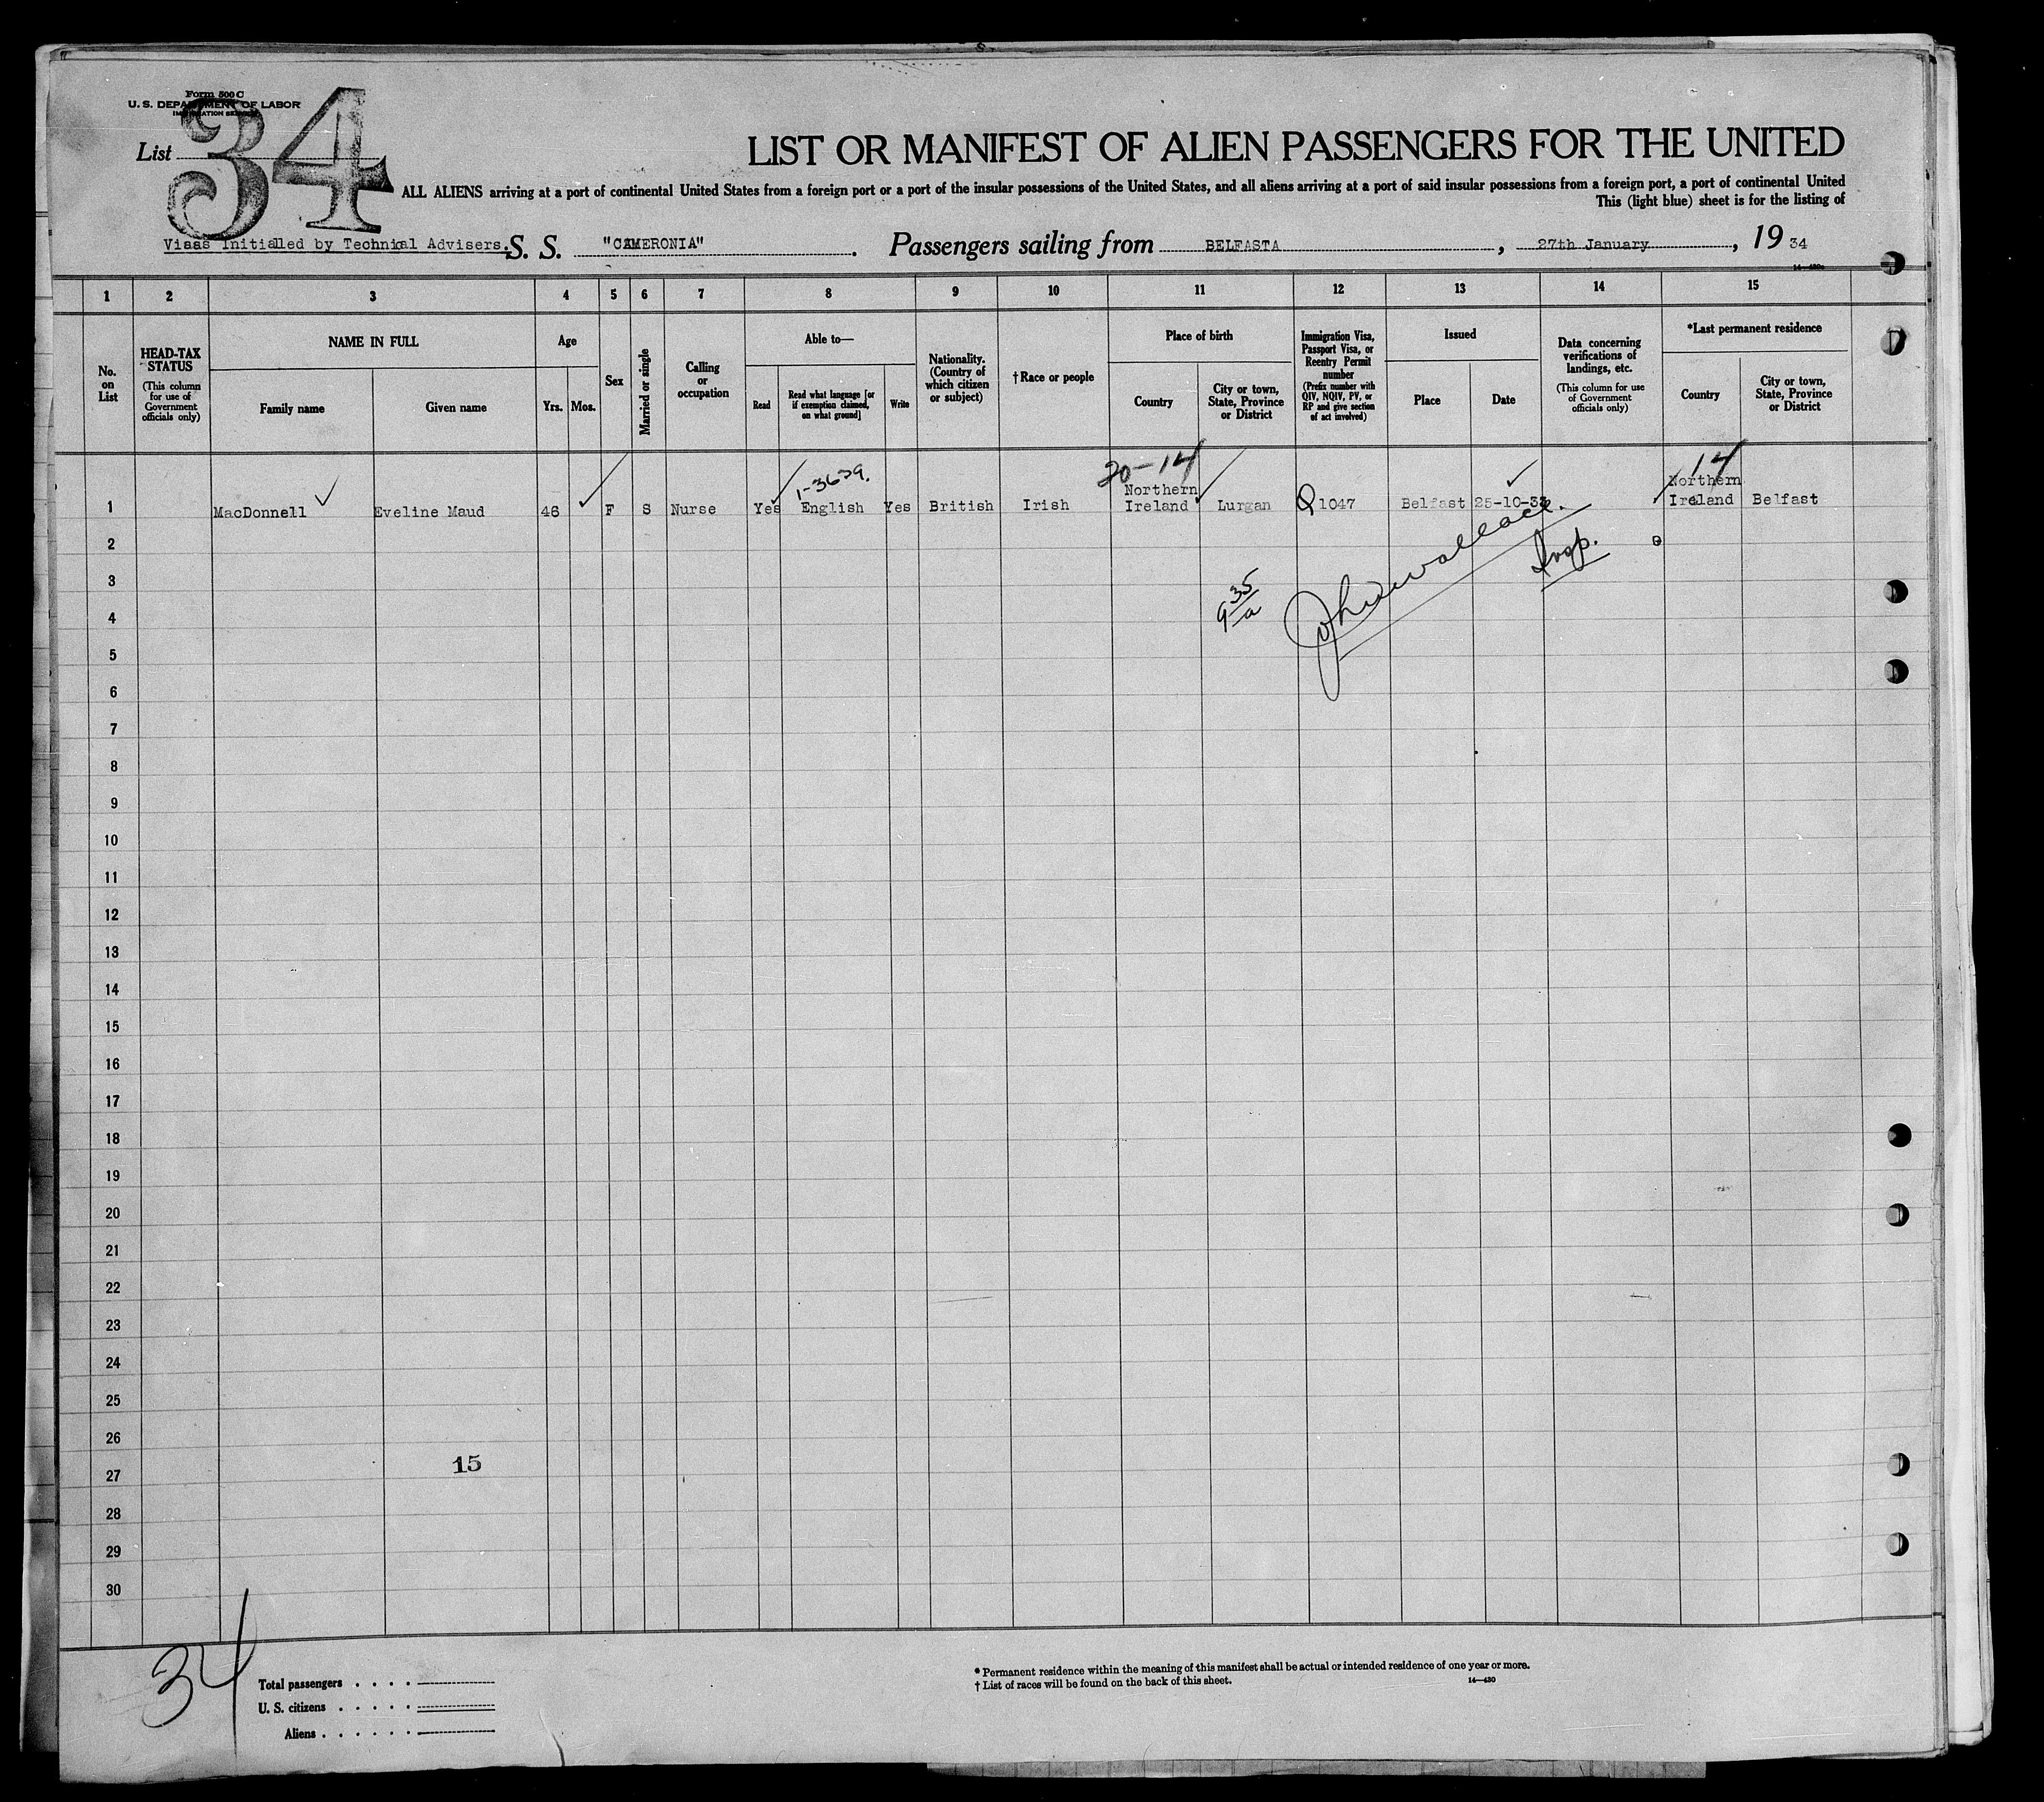 Form 500 C
U. S. DEPARTMENT OF LABOR
IMMIGRATION SERVICE
List 34
LIST OR MANIFEST OF ALIEN PASSENGERS FOR THE UNITED
ALL ALIENS arriving at a port of continental United States from a foreign port or a port of the insular possessions of the United States, and all aliens arriving at a port of said insular possessions from a foreign port, a port of continental United
This (light blue) sheet is for the listing of
Visas Initialled by Technical Advisers. S. S. "CAMERONIA". Passengers sailing from BELFASTA, 27th January, 19 34
1 2 3 4 5 6 7 8 9 10 11 12 13 14 15
No. on List
HEAD-TAX STATUS (This column for use of Government officials only)
NAME IN FULL
Family name
Given name
Age
Yrs. Mos.
Sex
Married or single
Calling or occupation
Able to—
Read
Read what language [or if exemption claimed, on what ground]
Write
Nationality. (Country of which citizen or subject)
†Race or people
Place of birth
Country
City or town, State, Province or District
Immigration Visa, Passport Visa, or Reentry Permit number (Prefix number with QIV, NQIV, PV, or RP and give section of act involved)
Issued
Place
Date
Data concerning verifications of landings, etc. (This column for use of Government officials only)
*Last permanent residence
Country
City or town, State, Province or District
20-14
14
1 MacDonnell Eveline Maud 46 F S Nurse Yes English Yes British Irish Northern Ireland Lurgan Q 1047 Belfast 25-10-33 Northern Ireland Belfast
John Wallace.
Insp.
9 35/a
2
3
4
5
6
7
8
9
10
11
12
13
14
15
16
17
18
19
20
21
22
23
24
25
26
15
27
28
29
30
34
Total passengers . . . .
U. S. citizens . . . . .
Aliens . . . . . .
* Permanent residence within the meaning of this manifest shall be actual or intended residence of one year or more.
† List of races will be found on the back of this sheet. 14—430